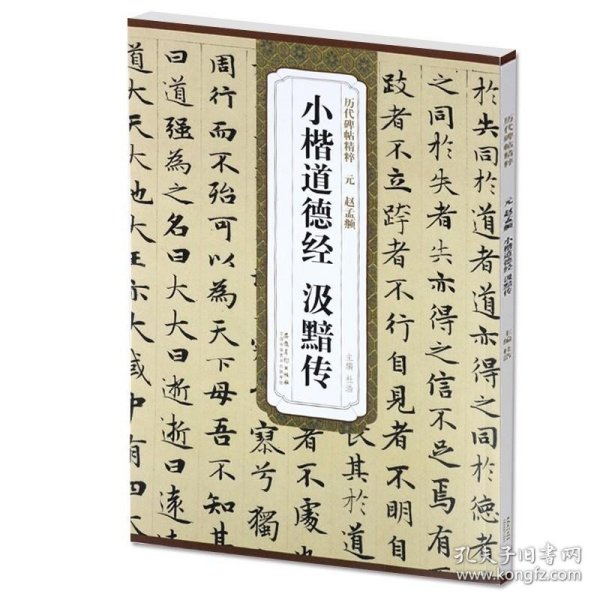 历代碑帖精粹 元 赵孟頫
小楷道德经 汲黯传
主编 杜浩
於失同於道者道亦得之同於德者
之同於失者失亦得之信不足焉有
跂者不立跨者不行自見者不明自
長其於
者不處
兮獨
周行而不殆可以為天下母吾不知其
曰道強為之名曰大大曰逝逝曰遠
道大天大
王亦大
中有四
历代碑帖精粹
元 赵孟頫 小楷道德经 汲黯传
主编 杜浩
孔夫子旧书网
www.kongfz.com